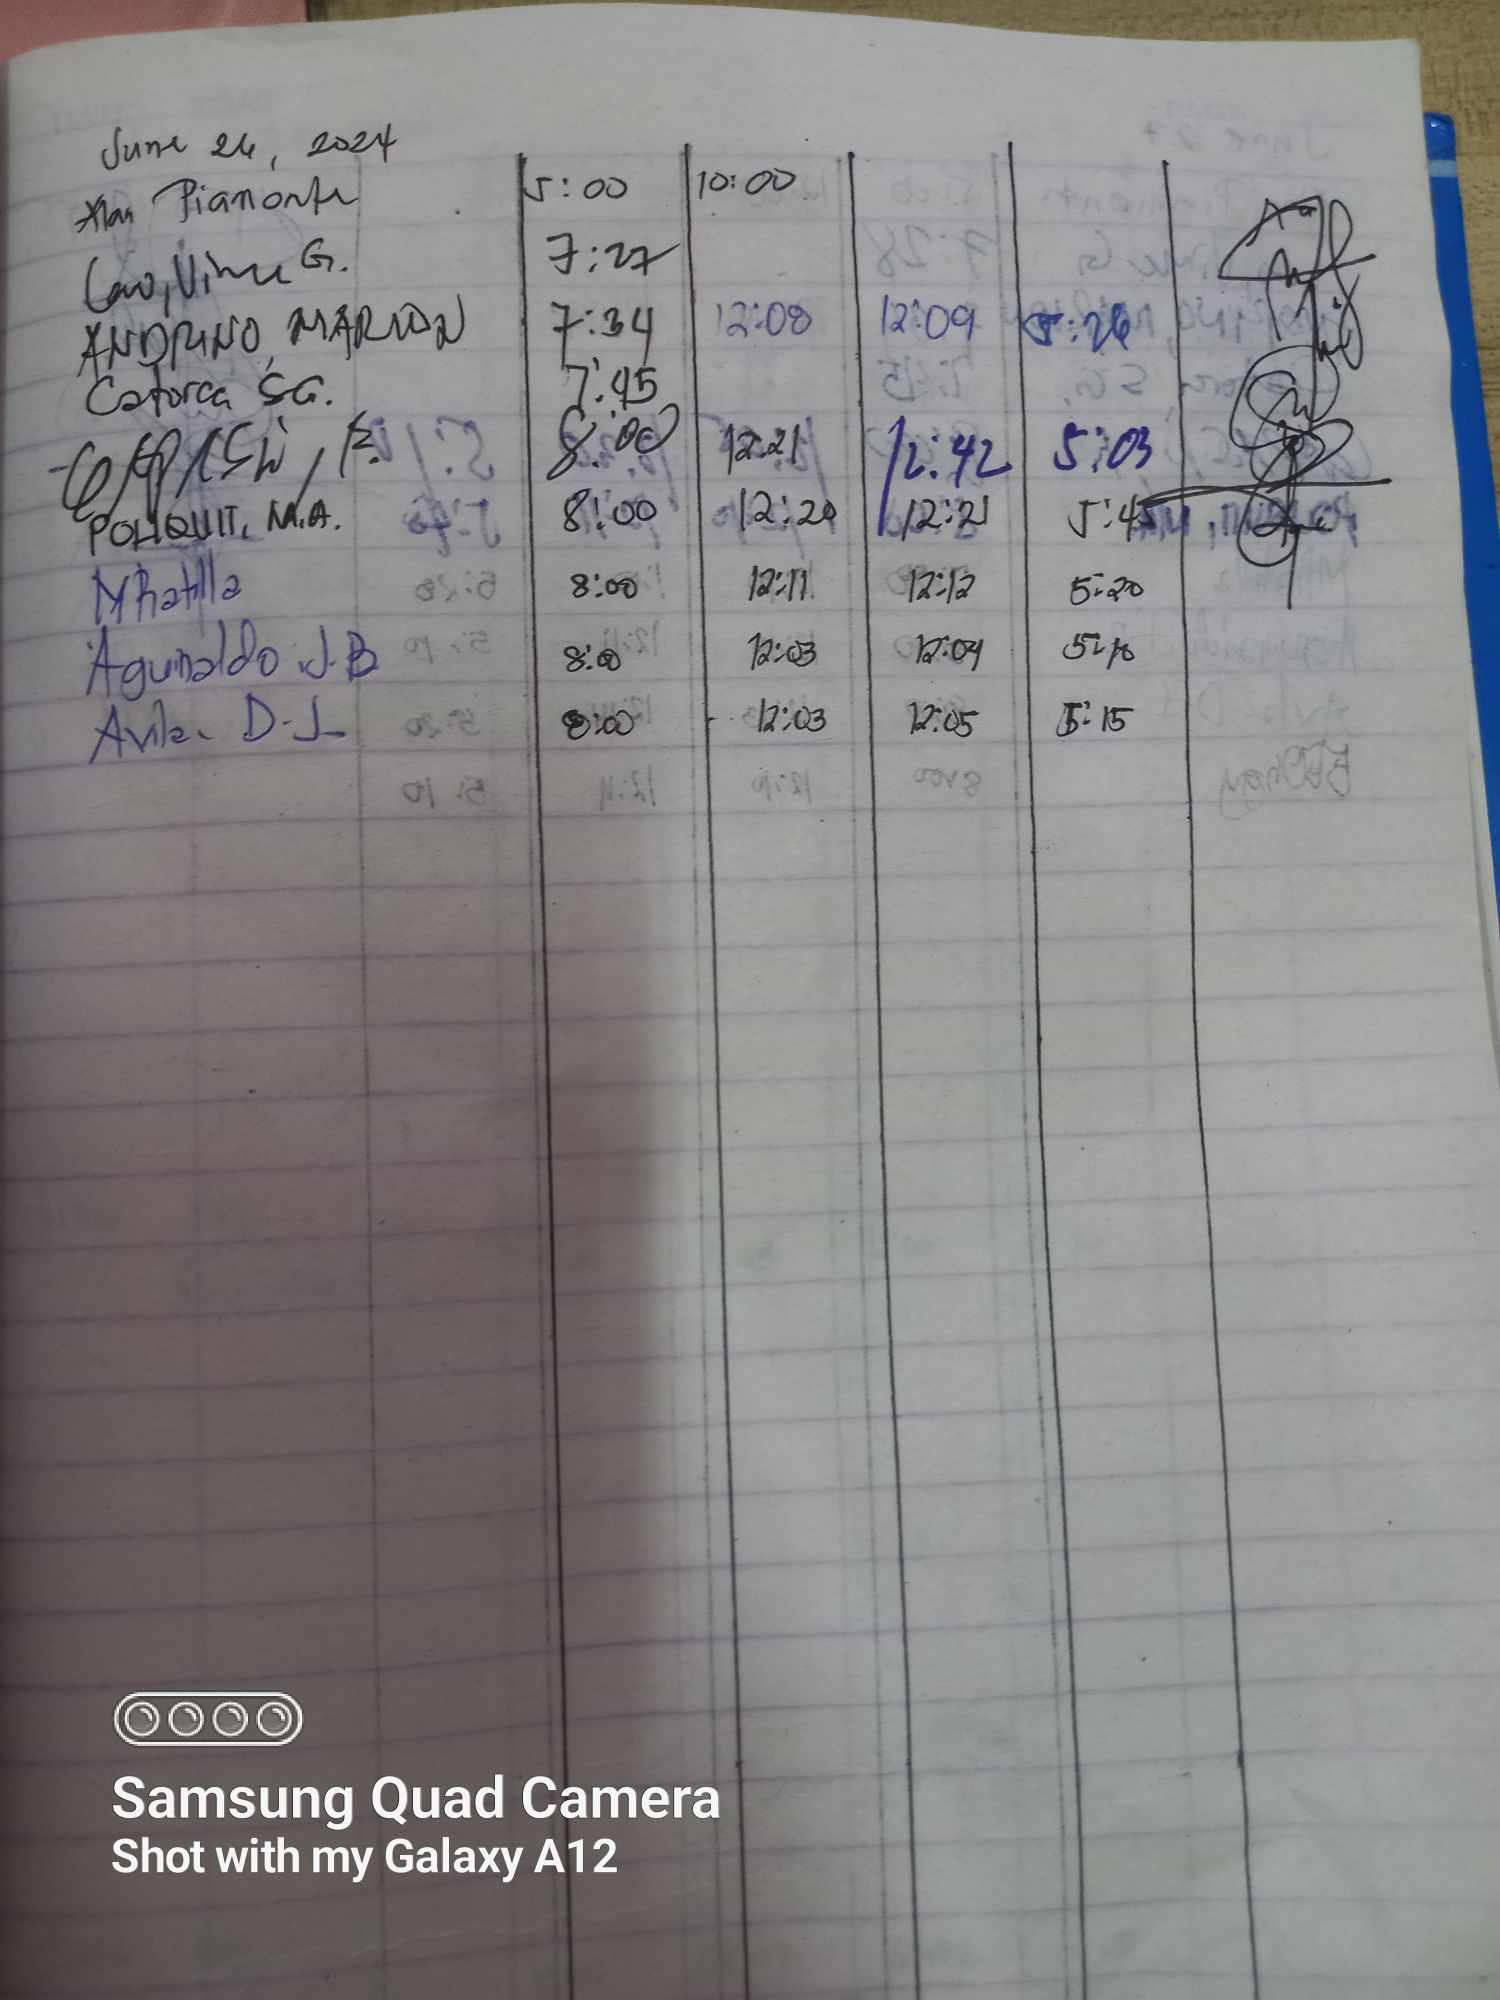 June 26, 2024
Alan Piamonte 5:00 10:00
Vince G. 7:27
ANDRINO, MARION 7:34 12:08 12:09 5:26
Catorca SG. 7:45
8:00 12:21 12:42 5:03
POLIQUIT, M.A. 8:00 12:20 12:21 5:45
8:00 12:11 12:12 5:20
Aguinaldo J.B 8:00 12:03 12:04 5:10
Avila D.L 8:00 12:03 12:05 5:15
Samsung Quad Camera
Shot with my Galaxy A12